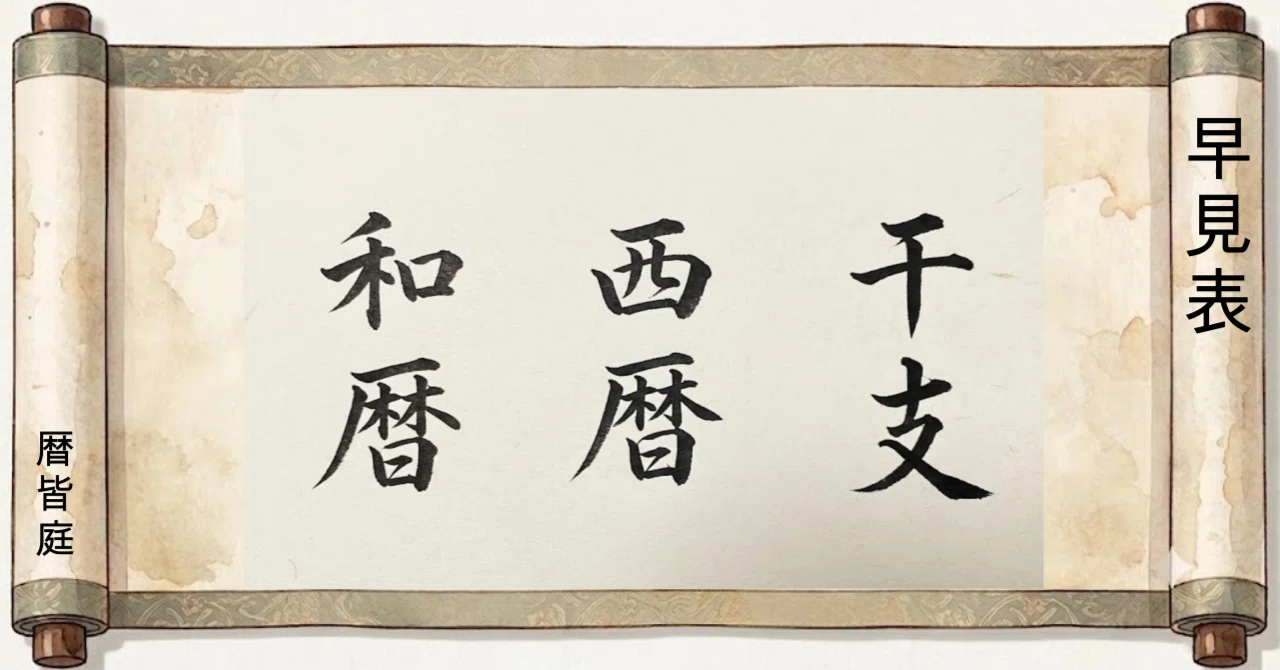 早見表
干支
西暦
和暦
暦皆庭